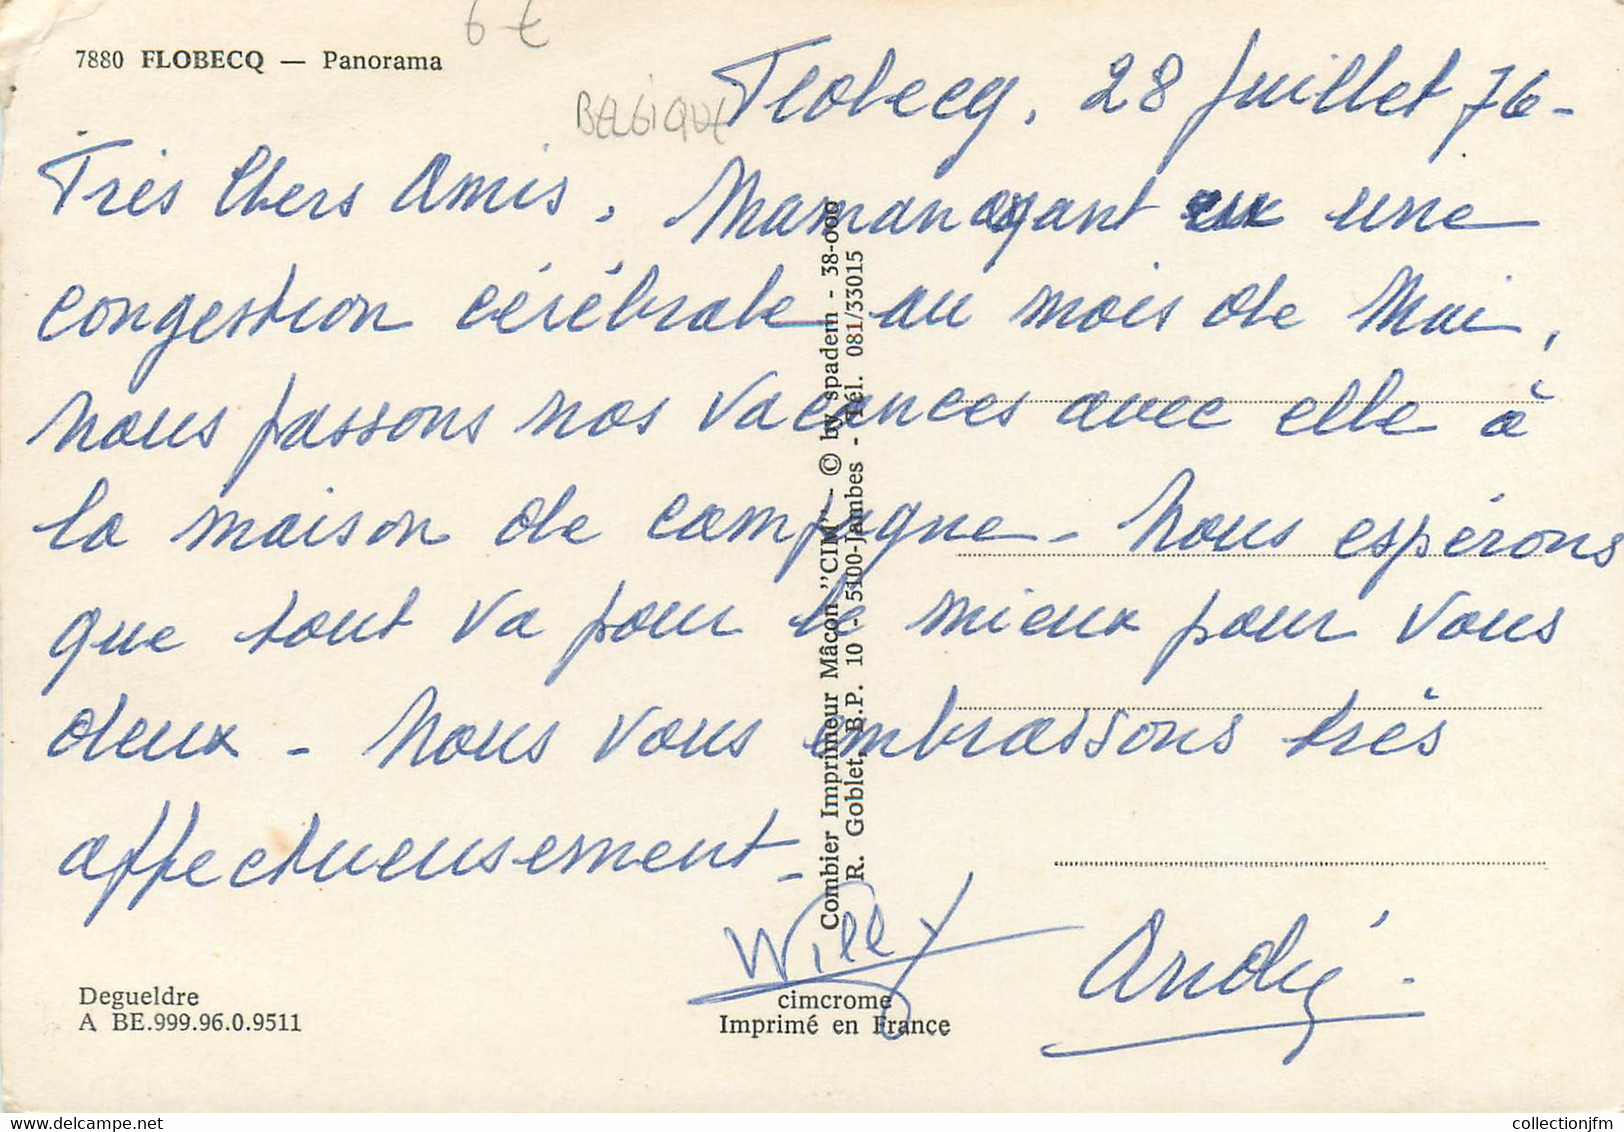 6 €
7880 FLOBECQ — Panorama
BELGIQUE
Flobecq, 28 Juillet 76 -
Très Chers Amis, Maman ayant eu une
congestion cérébrale au mois de Mai,
nous passons nos vacances avec elle à
la maison de campagne - Nous espérons
que tout va pour le mieux pour vous
deux - Nous vous embrassons très
affectueusement -
Willy
André -
Combier Imprimeur Mâcon "CIM" - © by spadem - 38-000
R. Goblet, B.P. 10 - 5100-Jambes - Tél. 081/33015
Degueldre
A BE.999.96.0.9511
cimcrome
Imprimé en France
collectionjfm